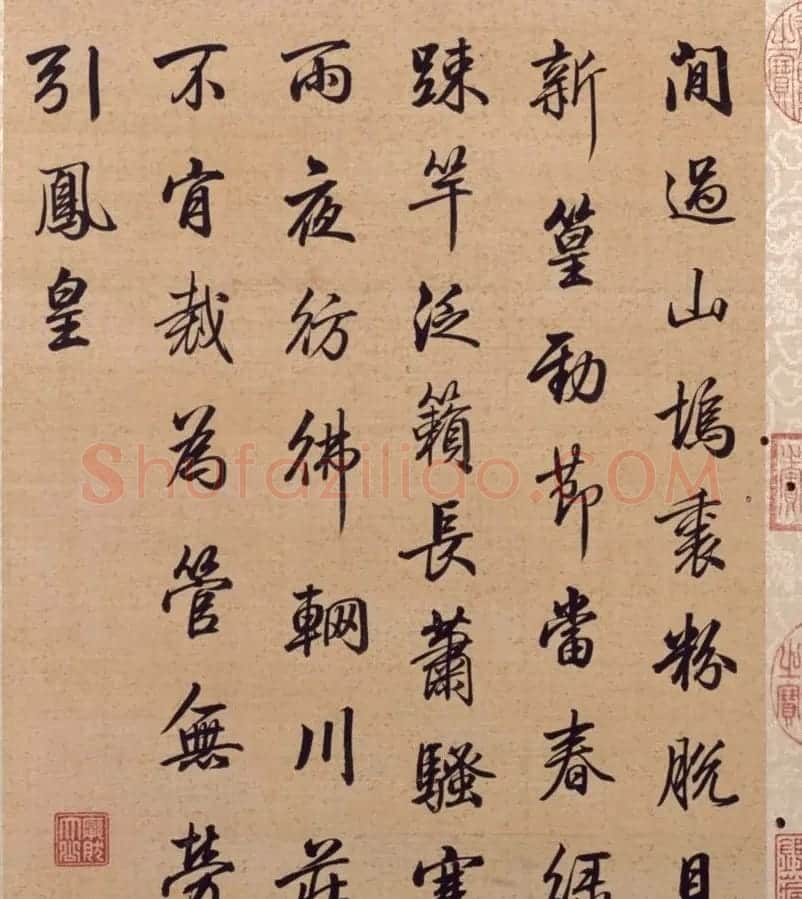 間過山塢裏粉脫
新篁勁節當春
踈竿泛籟長蕭騷寒
雨夜彷彿輞川莊
不肯裁為管無勞
引鳳皇
Shufaziliao.COM
之寶